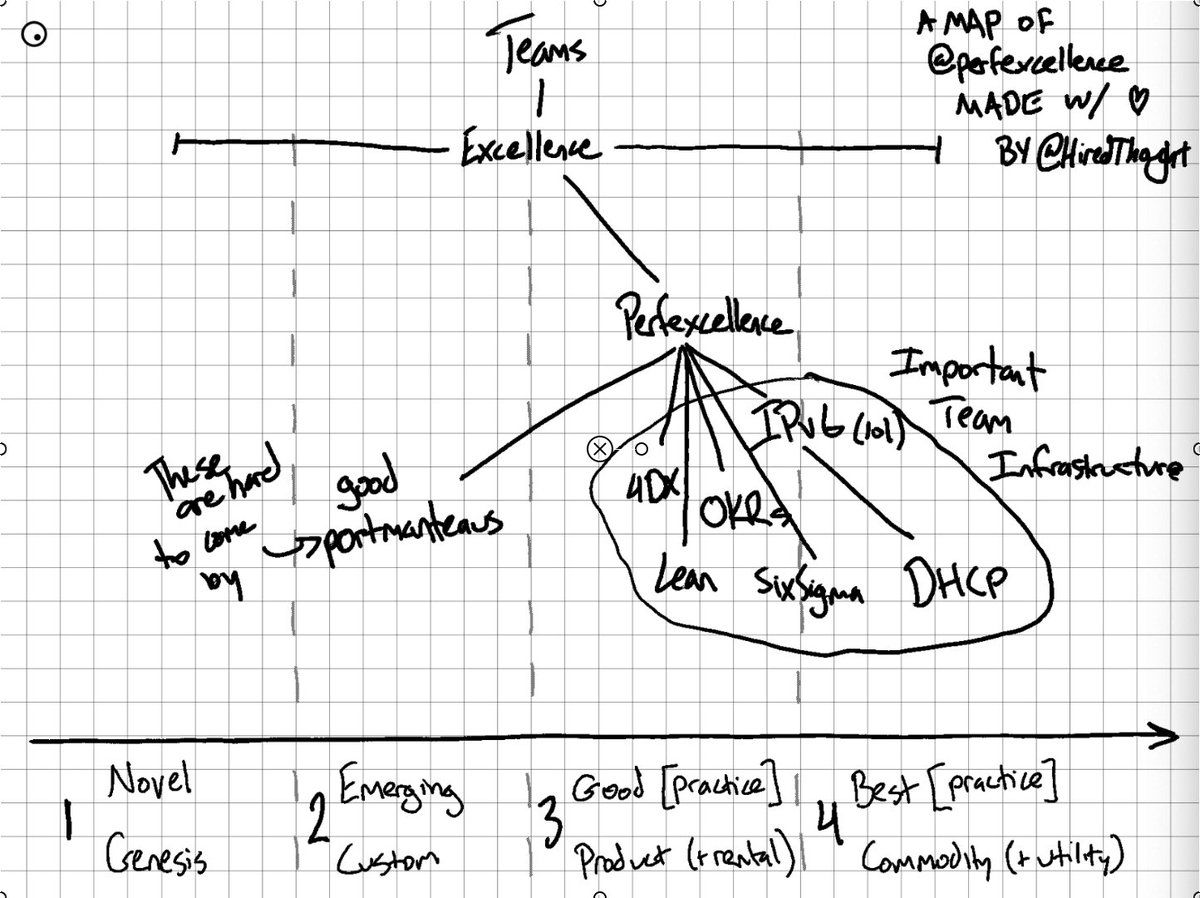 Teams
Excellence
A MAP OF
@perfexcellence
MADE W/ ♡
BY @HiredThought
Perfexcellence
Important
Team
Infrastructure
IPv6 (lol)
4DX
OKRs
Lean
SixSigma
DHCP
These
are hard
to come
by
good
portmanteaus
1
Novel
Genesis
2
Emerging
Custom
3
Good [practice]
Product (+rental)
4
Best [practice]
Commodity (+utility)